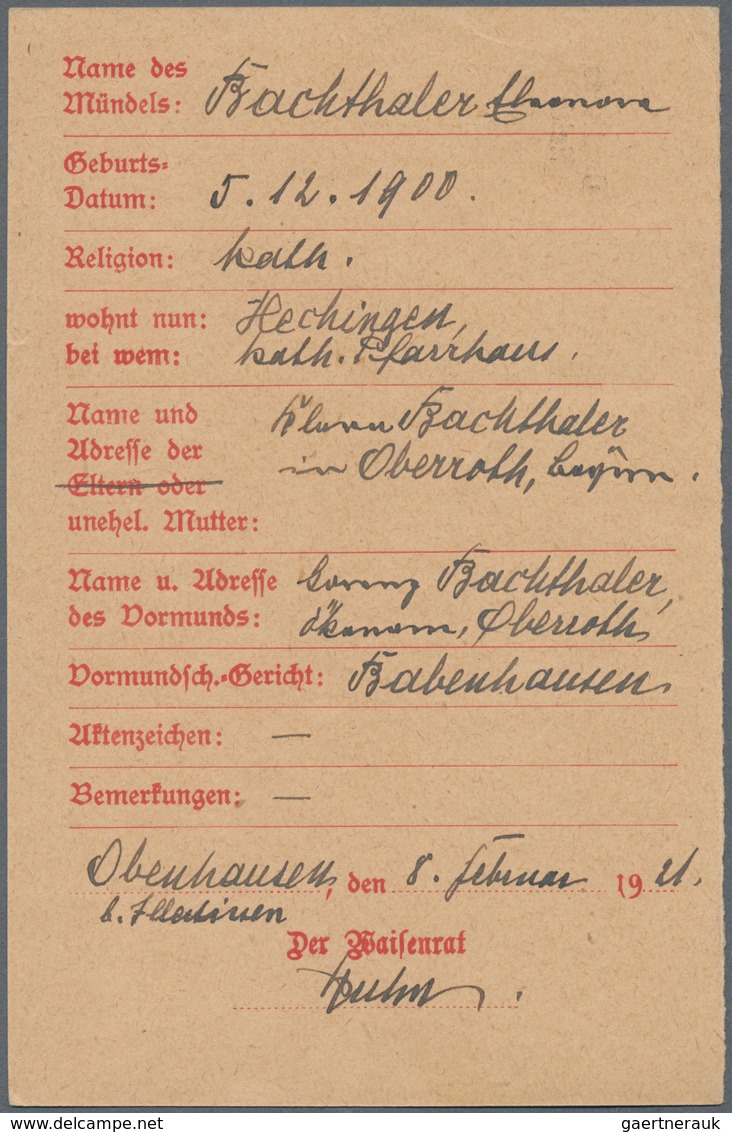 Name des
Mündels: Bachthaler Eleonora
Geburts-
Datum: 5.12.1900.
Religion: kath.
wohnt nun: Hechingen,
bei wem: kath. Pfarrhaus.
Name und Bachthaler
Adresse der in Oberroth, Bayern.
Eltern oder
unehel. Mutter:
Name u. Adresse Lorenz Bachthaler,
des Vormunds: Ökonom, Oberroth
Vormundsch.-Gericht: Babenhausen
Aktenzeichen: —
Bemerkungen: —
Obenhausen, den 8. Februar 1921.
b. Illertissen
Der Waisenrat
gaertnerauk
delcampe.net